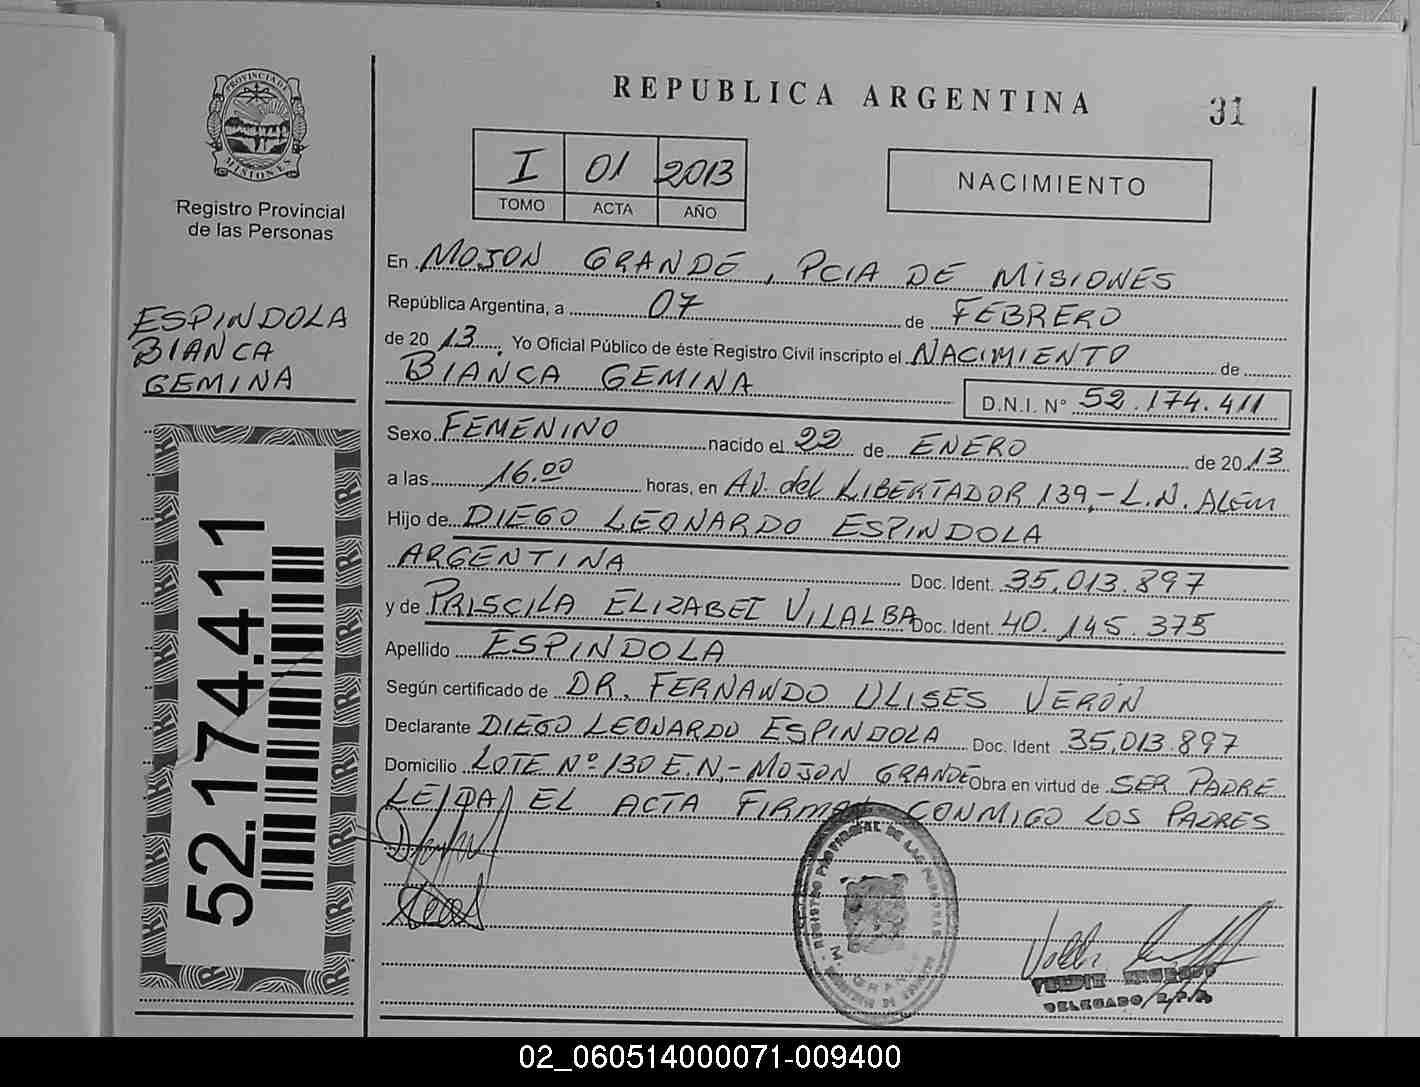 PROVINCIA DE
MISIONES
Registro Provincial
de las Personas
ESPINDOLA
BIANCA
GEMINA
52.174.411
REPUBLICA ARGENTINA
31
I 01 2013
TOMO ACTA AÑO
NACIMIENTO
En MOJON GRANDE, PCIA DE MISIONES
República Argentina, a 07 de FEBRERO
de 2013. Yo Oficial Público de éste Registro Civil inscripto el NACIMIENTO de
BIANCA GEMINA
D.N.I. N° 52.174.411
Sexo FEMENINO nacido el 22 de ENERO de 2013
a las 16.00 horas, en AV. del LIBERTADOR 139.- L.N. ALEM
Hijo de DIEGO LEONARDO ESPINDOLA
ARGENTINA Doc. Ident. 35.013.897
y de PRISCILA ELIZABET VILALBA Doc. Ident. 40.145.375
Apellido ESPINDOLA
Según certificado de DR. FERNANDO ULISES VERÓN
Declarante DIEGO LEONARDO ESPINDOLA Doc. Ident 35.013.897
Domicilio LOTE Nº 130 E.N.- MOJON GRANDE Obra en virtud de SER PADRE
LEIDA EL ACTA FIRMAN CONMIGO LOS PADRES
REGISTRO PROVINCIAL DE LAS PERSONAS
DELEGADO R.P.P.
02_060514000071-009400